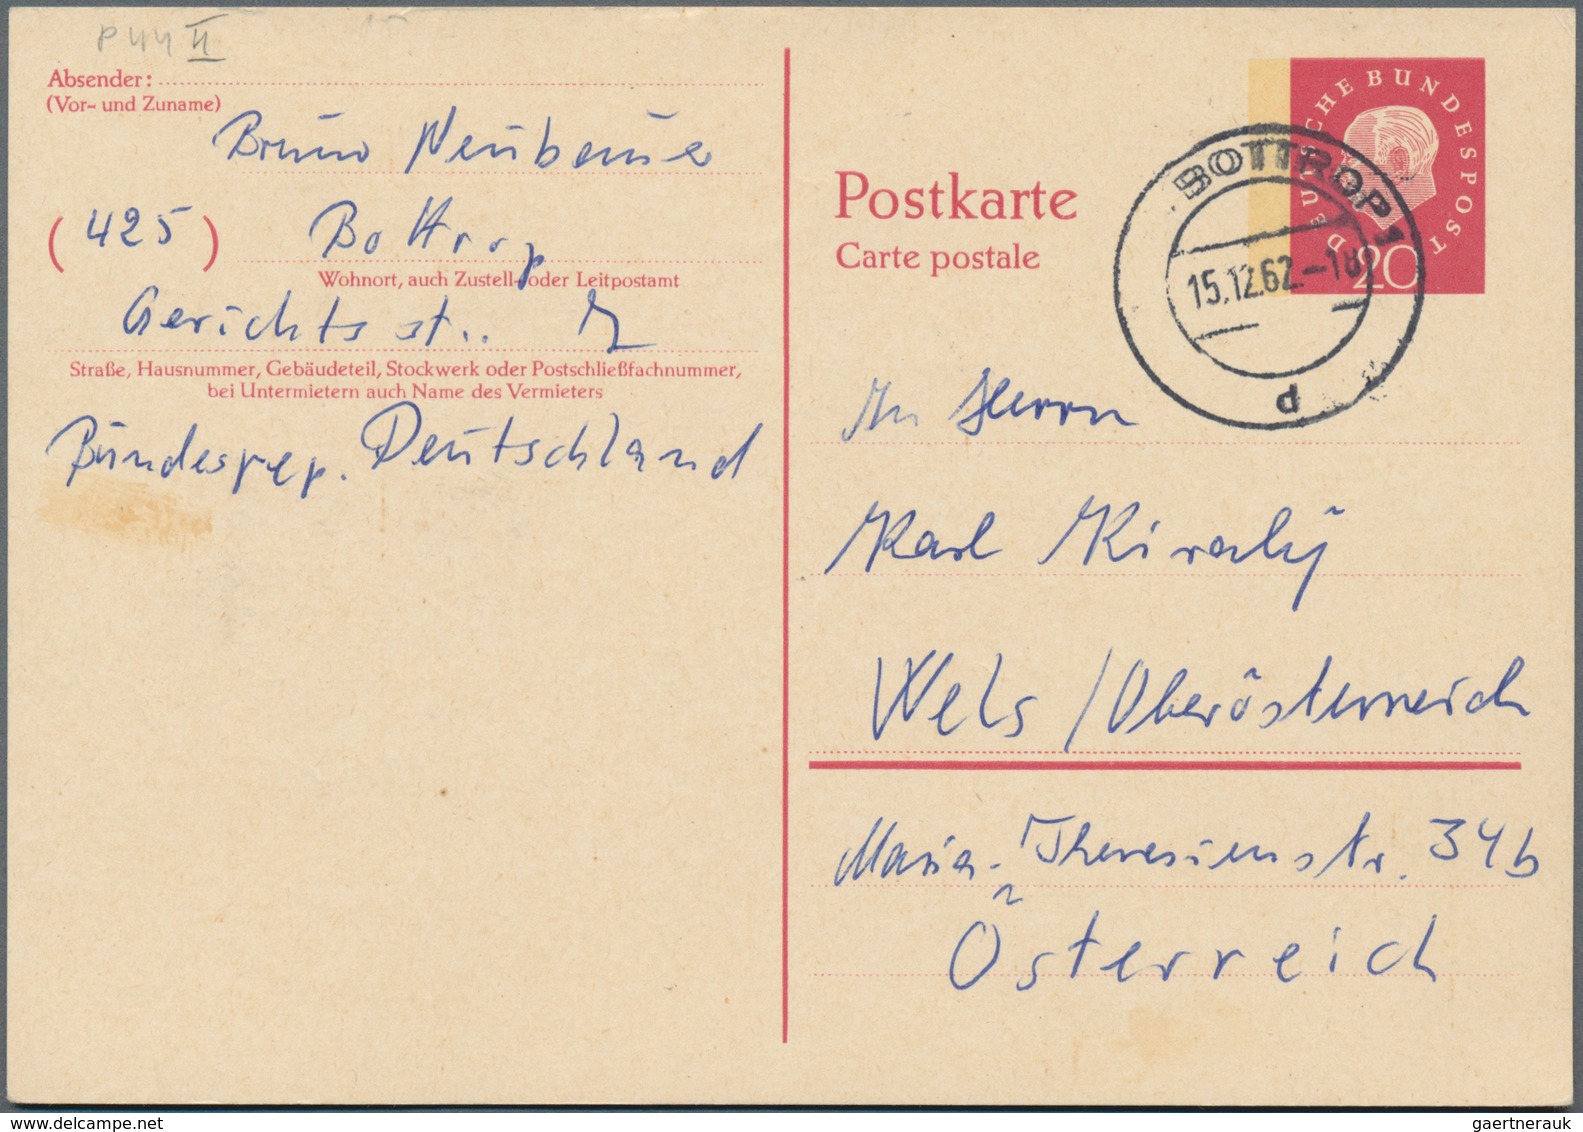 P 44 II
Absender:
(Vor- und Zuname)
Bruno Neubauer
(425) Bottrop
Wohnort, auch Zustell- oder Leitpostamt
Gerichtsst..
Straße, Hausnummer, Gebäudeteil, Stockwerk oder Postschließfachnummer,
bei Untermietern auch Name des Vermieters
Bundesrep. Deutschland
Postkarte
Carte postale
DEUTSCHE BUNDESPOST
20
BOTTROP 1
15.12.62.-18
d
An Herrn
Karl Kiraly
Wels / Oberösterreich
Maria-Theresienstr. 34b
Österreich
gaertnerauk